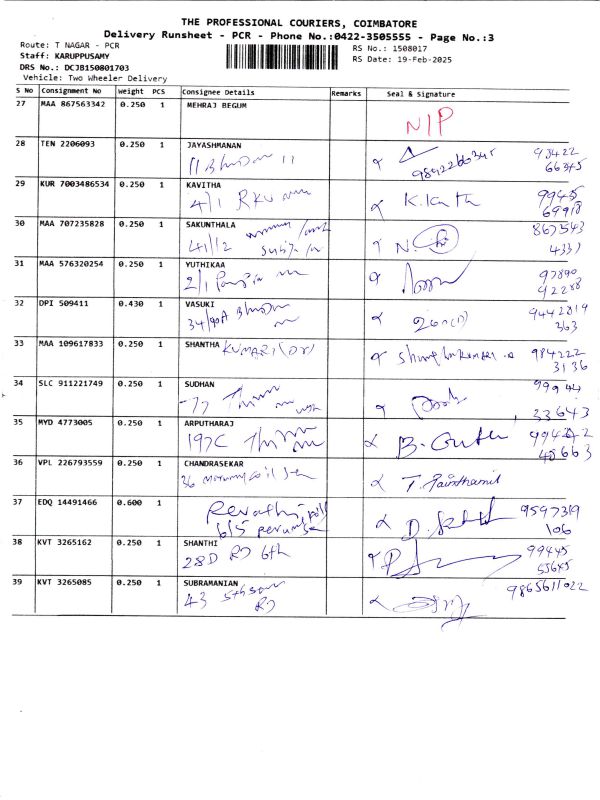 THE PROFESSIONAL COURIERS, COIMBATORE
Delivery Runsheet - PCR - Phone No.:0422-3505555 - Page No.:3
Route: T NAGAR - PCR
RS No.: 1508017
Staff: KARUPPUSAMY
RS Date: 19-Feb-2025
DRS No.: DCJB150801703
Vehicle: Two Wheeler Delivery
S No Consignment No Weight PCS Consignee Details Remarks Seal & Signature
27 MAA 867563342 0.250 1 MEHRAJ BEGUM
N/P
28 TEN 2206093 0.250 1 JAYASHMANAN
9842266345 93422
66345
29 KUR 7003486534 0.250 1 KAVITHA
4/1 RKV K.Kavitha 9945
69918
30 MAA 707235828 0.250 1 SAKUNTHALA
41/12 N. 867543
4337
31 MAA 576320254 0.250 1 YUTHIKAA
2/1 97890
42288
32 DPI 509411 0.430 1 VASUKI
34/90A 9442819
363
33 MAA 109617833 0.250 1 SHANTHA
KUMARI (DR) 984222
3136
34 SLC 911221749 0.250 1 SUDHAN
77 99944
33643
35 MYD 4773005 0.250 1 ARPUTHARAJ
197C B.
48663
36 VPL 226793559 0.250 1 CHANDRASEKAR
36
37 EDQ 14491466 0.600 1
Revathi
615 D. 9597319
106
38 KVT 3265162 0.250 1 SHANTHI
28D RD 6th 99445
55645
39 KVT 3265085 0.250 1 SUBRAMANIAN
43 5th
RD 9865611022